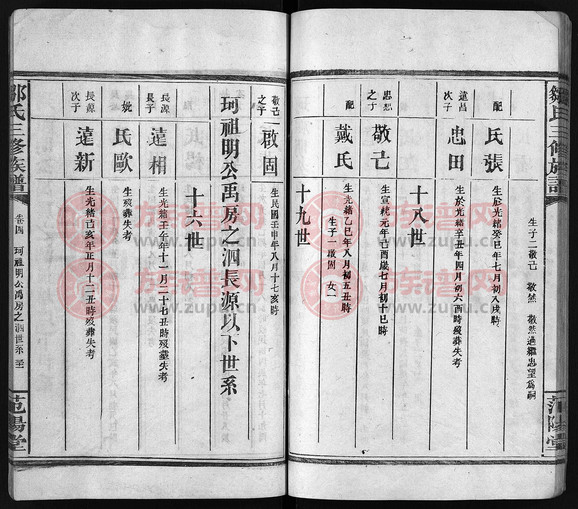 鄒氏三修族譜
范陽堂
生子二敬己 敬然 敬然過繼忠望爲嗣
配
氏張
生於光緒癸巳年七月初八戌時
遠昌次子
忠田
生於光緒辛丑年四月初六酉時歿葬失考
十八世
忠恕之子
敬己
生宣統元年己酉歲七月初十巳時
配
戴氏
生光緒乙巳年八月初五丑時
生子一啟固 女一
十九世
敬己之子
一啟固
生民國壬申年八月十七亥時
珂祖明公禹房之泗長源以下世系
十六世
長源長子
遠相
生光緒壬午年十一月二十七丑時歿葬失考
妣
氏歐
生歿葬失考
長源次子
遠新
生光緒己亥年正月十二丑時歿葬失考
鄒氏三修族譜
卷四 珂祖明公禹房之泗世系
范陽堂
族谱网
www.zupu.cn
族谱网
www.zupu.cn